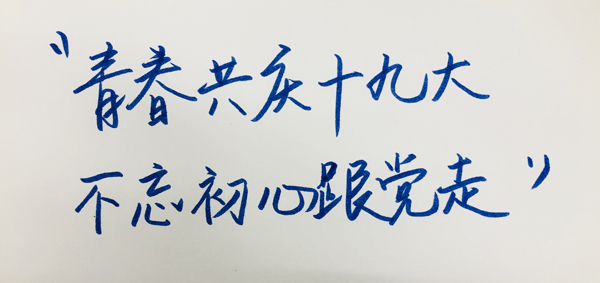 “青春共庆十九大
不忘初心跟党走”